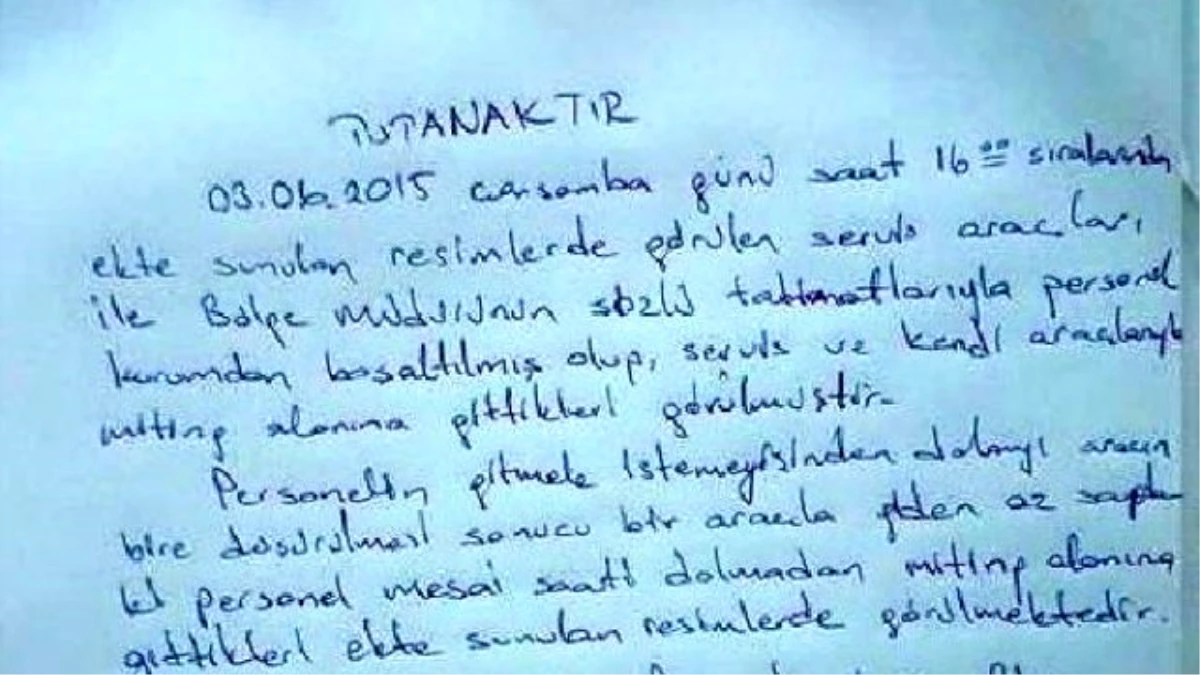 TUTANAKTIR
03.06.2015 Çarşamba günü saat 16⁰⁰ sıralarında
ekte sunulan resimlerde görülen servis araçları
ile Bölge Müdürünün sözlü talimatlarıyla personel
kurumdan boşaltılmış olup, servis ve kendi araçlarıyla
miting alanına gittikleri görülmüştür.
Personelin gitmek istemeyişinden dolayı aracın
bire düşürülmesi sonucu bir araçla giden az sayıda
ki personel mesai saati dolmadan miting alanına
gittikleri ekte sunulan resimlerde görülmektedir.